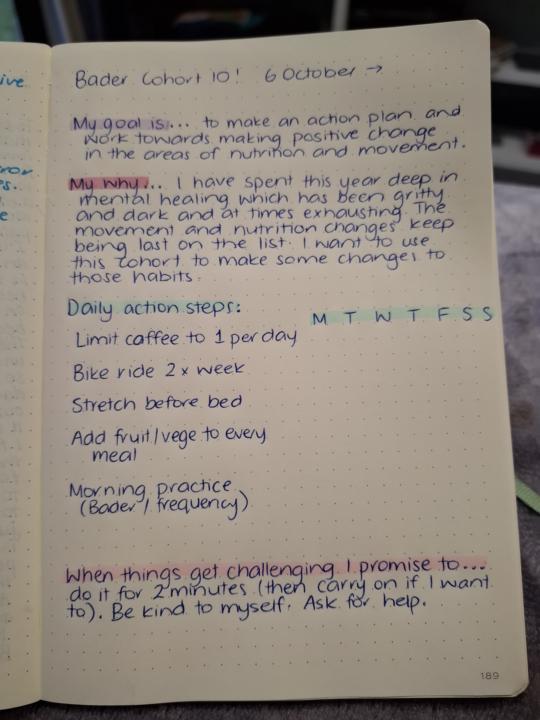 ive
ror
s.
e
Bader Cohort 10! 6 October →
My goal is... to make an action plan and
work towards making positive change
in the areas of nutrition and movement.
My why... I have spent this year deep in
mental healing which has been gritty
and dark and at times exhausting. The
movement and nutrition changes keep
being last on the list. I want to use
this cohort to make some changes to
those habits.
Daily action steps:
M T W T F S S
Limit caffee to 1 per day
Bike ride 2x week
Stretch before bed
Add fruit/vege to every
meal
Morning practice
(Bader / frequency)
When things get challenging I promise to...
do it for 2 minutes (then carry on if I want
to). Be kind to myself. Ask for help.
189